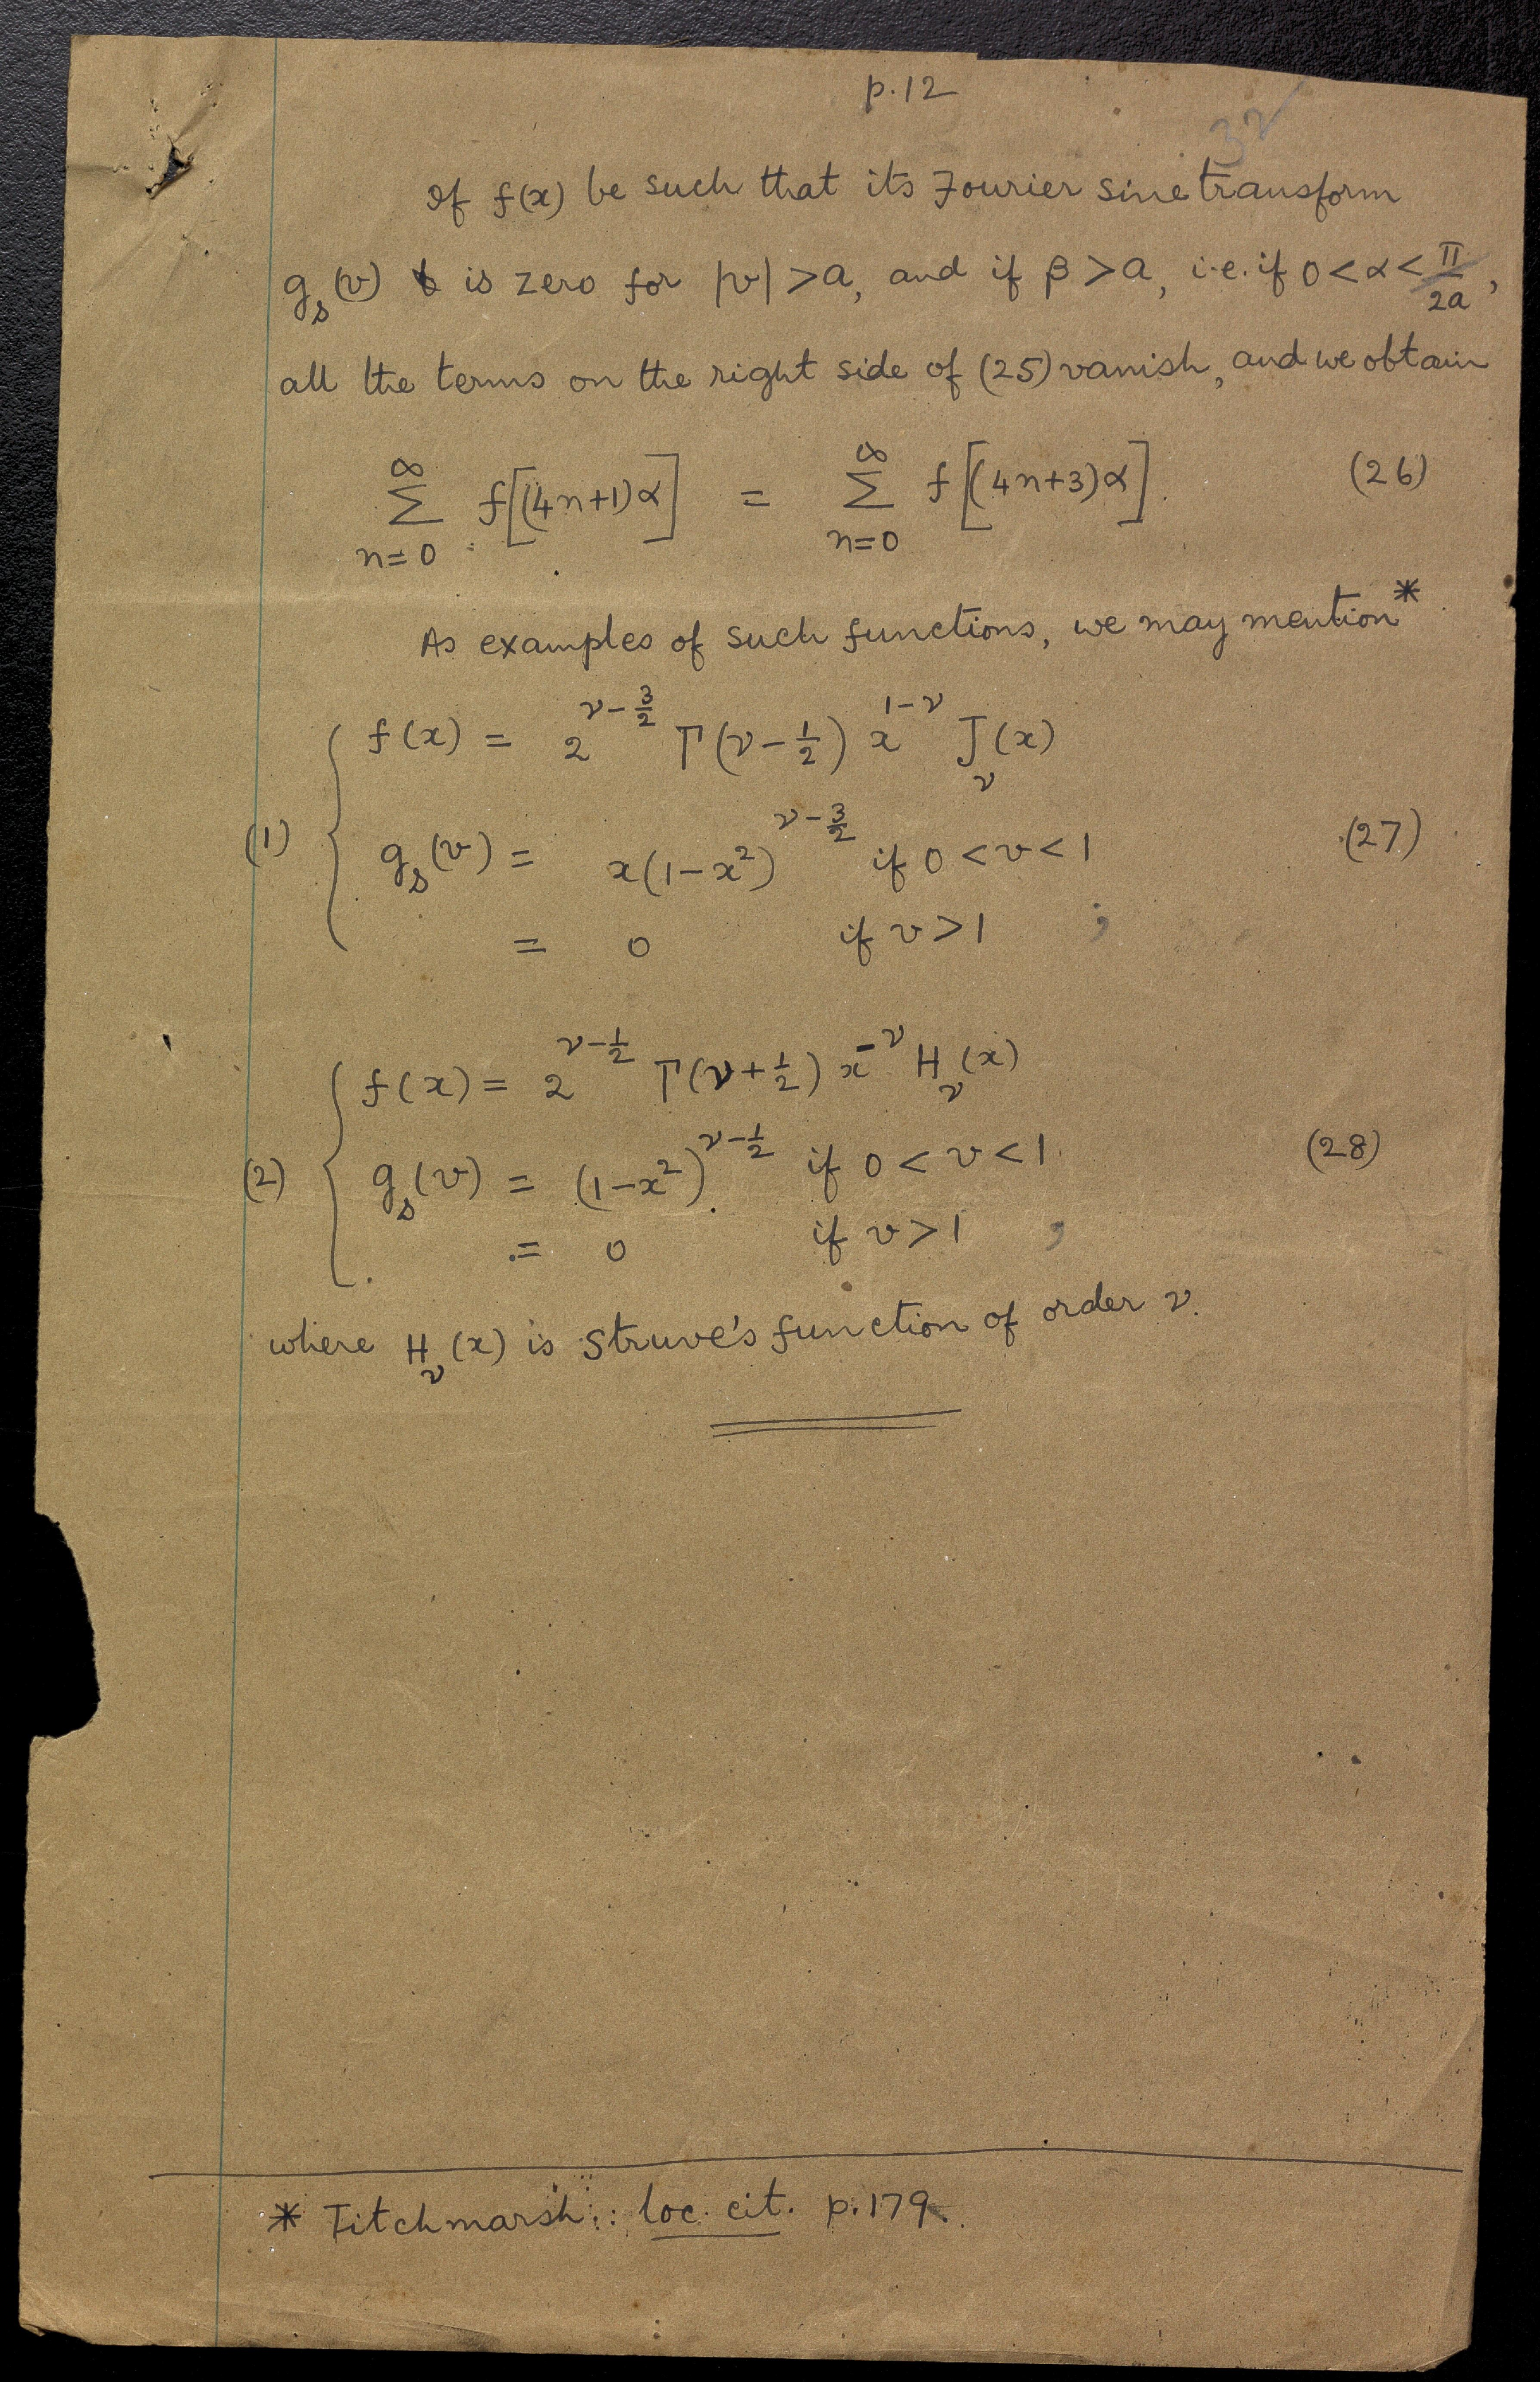 p.12
32
If f(x) be such that its Fourier sine transform
g_s(v) is zero for |v| > a, and if β > a, i.e. if 0 < α < π/2a,
all the terms on the right side of (25) vanish, and we obtain
∑_{n=0}^{∞} f[(4n+1)α] = ∑_{n=0}^{∞} f[(4n+3)α]. (26)
As examples of such functions, we may mention*
f(x) = 2^{ν-3/2} Γ(ν-1/2) x^{1-ν} J_ν(x)
(1) g_s(v) = x(1-x²)^{ν-3/2} if 0 < v < 1 (27)
= 0 if v > 1 ;
f(x) = 2^{ν-1/2} Γ(ν+1/2) x^{-ν} H_ν(x)
(2) g_s(v) = (1-x²)^{ν-1/2} if 0 < v < 1 (28)
= 0 if v > 1 ,
where H_ν(x) is Struve's function of order ν.
* Titchmarsh: loc. cit. p. 179.